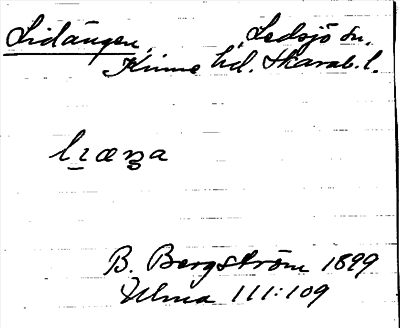 Lidängen, Ledsjö sn.
Kinne hd. Skarab. l.
B. Bergström 1899
Ulma 111:109